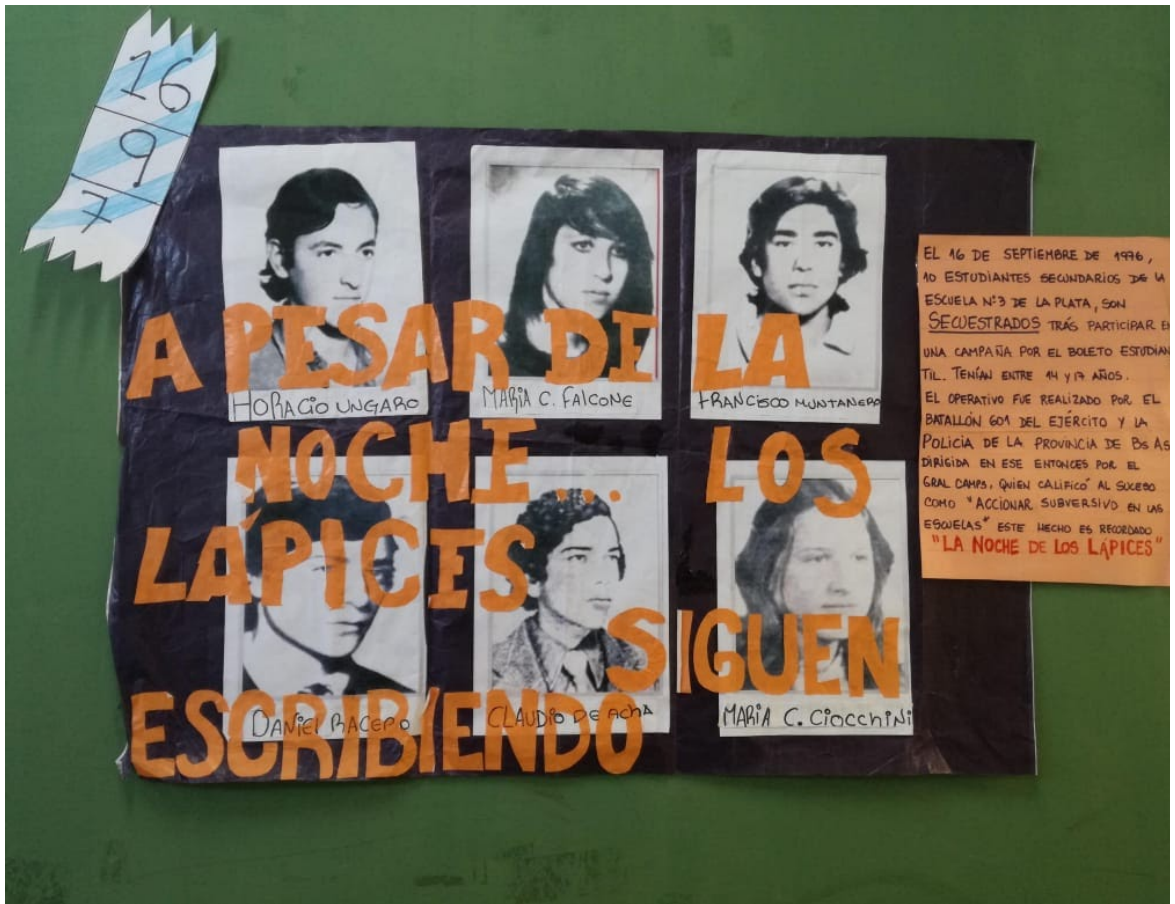 16
9
7
HORACIO UNGARO
MARIA C. FALCONE
FRANCISCO MUNTANERO
A PESAR DE LA
NOCHE... LOS
LÁPICES
SIGUEN
ESCRIBIENDO
DANIEL RACERO
CLAUDIO DE ACHA
MARIA C. CIOCCHINI
EL 16 DE SEPTIEMBRE DE 1976,
10 ESTUDIANTES SECUNDARIOS DE LA
ESCUELA N:3 DE LA PLATA, SON
SECUESTRADOS TRÁS PARTICIPAR EN
UNA CAMPAÑA POR EL BOLETO ESTUDIAN
TIL. TENÍAN ENTRE 14 Y 17 AÑOS.
EL OPERATIVO FUE REALIZADO POR EL
BATALLÓN 601 DEL EJÉRCITO Y LA
POLICIA DE LA PROVINCIA DE BS AS
DIRIGIDA EN ESE ENTONCES POR EL
GRAL CAMPS, QUIEN CALIFICÓ AL SUCESO
COMO "ACCIONAR SUBVERSIVO EN LAS
ESCUELAS" ESTE HECHO ES RECORDADO
"LA NOCHE DE LOS LÁPICES"